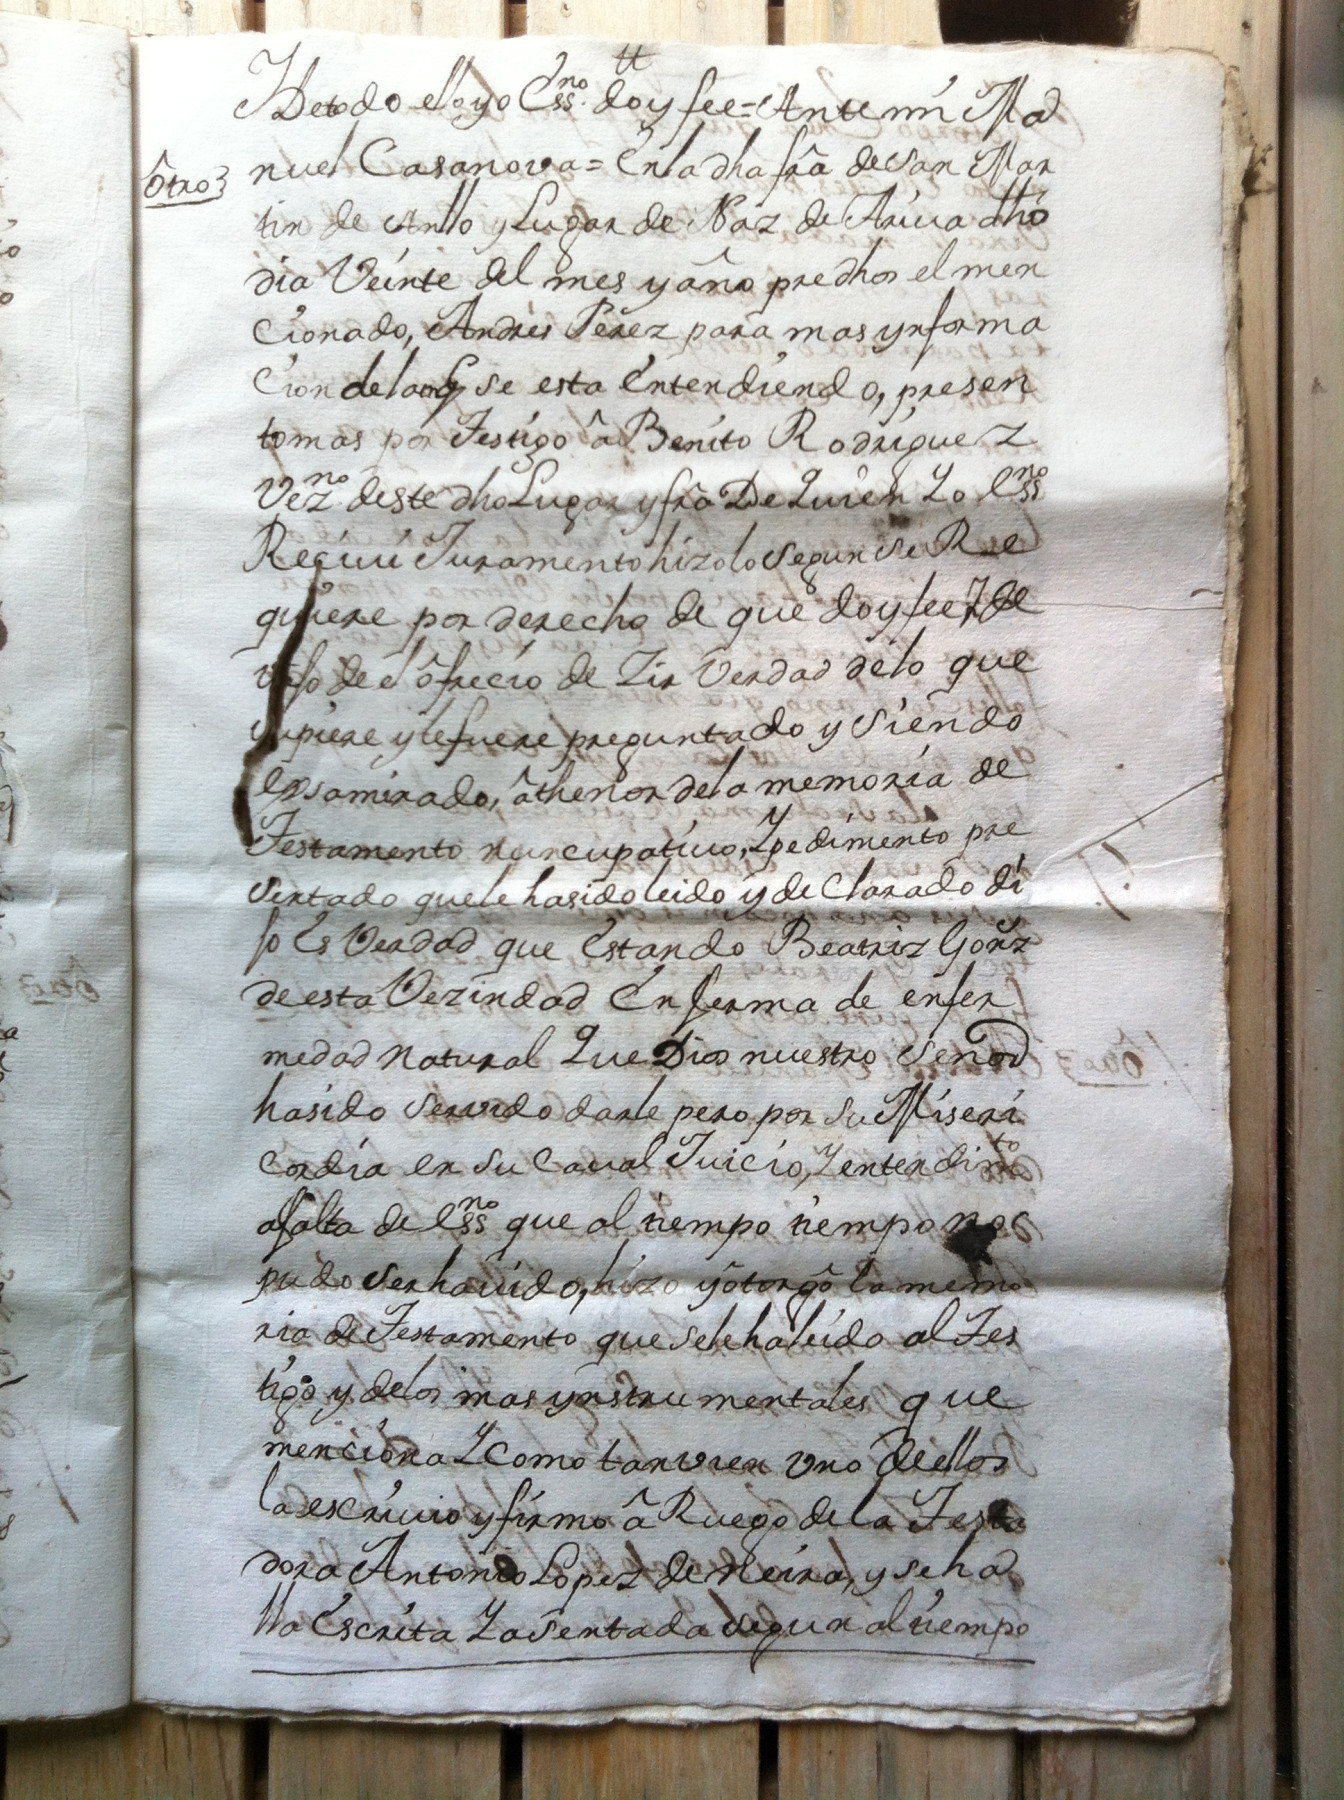 tt
Y De todo ello yo Essno. doy fee = Ante mi Ma
Otro nuel Casanova = En la dha fra de San Mar
tin de Anllo y Lugar de Naz de Ariva dho
dia Veinte del mes y año predhos el men
cionado, Andres Perez para mas ynforma
cion de la q se esta Entendiendo, presen
to mas por Testigo â Benito Rodriguez
Vezno deste dho Lugar y fra De Quien Yo essno
Reciui Juramento hizolo segun se Re
quiere por derecho de que doy fee Y de
vajo de el ôfrecio de Zir Verdad de lo que
supiere y le fuere preguntado y Siendo
exsaminado, âthenor de la memoria de
Testamento nuncupatiuo, Y pedimento pre
sentado que le ha sido leido y de Clarado di
jo Es Verdad que Estando Beatriz Gonz
de esta Vezindad Enferma de enfer
medad natural Que Dios nuestro Señor
ha sido servido darle pero por su Miseri
cordia en su Caval Juicio, Y entendimto
a falta de essno que al tiempo tiempo no
pudo ser hauido, hizo y ôtorgô la memo
ria de Testamento que se le ha leido al Tes
tigo, y de los mas ynstrumentales que
menciona Y Como tanvien Vno De ellos
la escriuio y firmo â Ruego de la Testa
dora Antonio Lopez de Neira, y se ha
lla Escrita Y asentada segun al tiempo